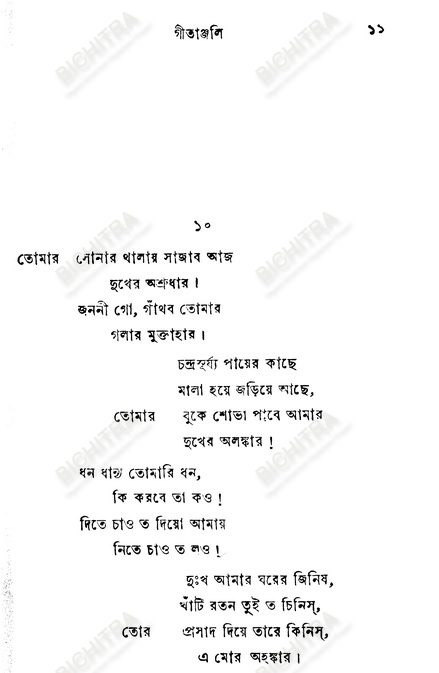 গীতাঞ্জলি ১১
১০
তোমার সোনার থালায় সাজাব আজ
দুখের অশ্রুধার।
জননী গো, গাঁথব তোমার
গলার মুক্তাহার।
চন্দ্রসূর্য্য পায়ের কাছে
মালা হয়ে জড়িয়ে আছে,
তোমার বুকে শোভা পাবে আমার
দুখের অলঙ্কার!
ধন ধান্য তোমারি ধন,
কি করবে তা কও!
দিতে চাও ত দিয়ো আমায়
নিতে চাও ত লও!
দুঃখ আমার ঘরের জিনিষ,
খাঁটি রতন তুই ত চিনিস্,
তোর প্রসাদ দিয়ে তারে কিনিস্,
এ মোর অহঙ্কার।
BICHITRA
BICHITRA
BICHITRA
BICHITRA
BICHITRA
BICHITRA
BICHITRA
BICHITRA